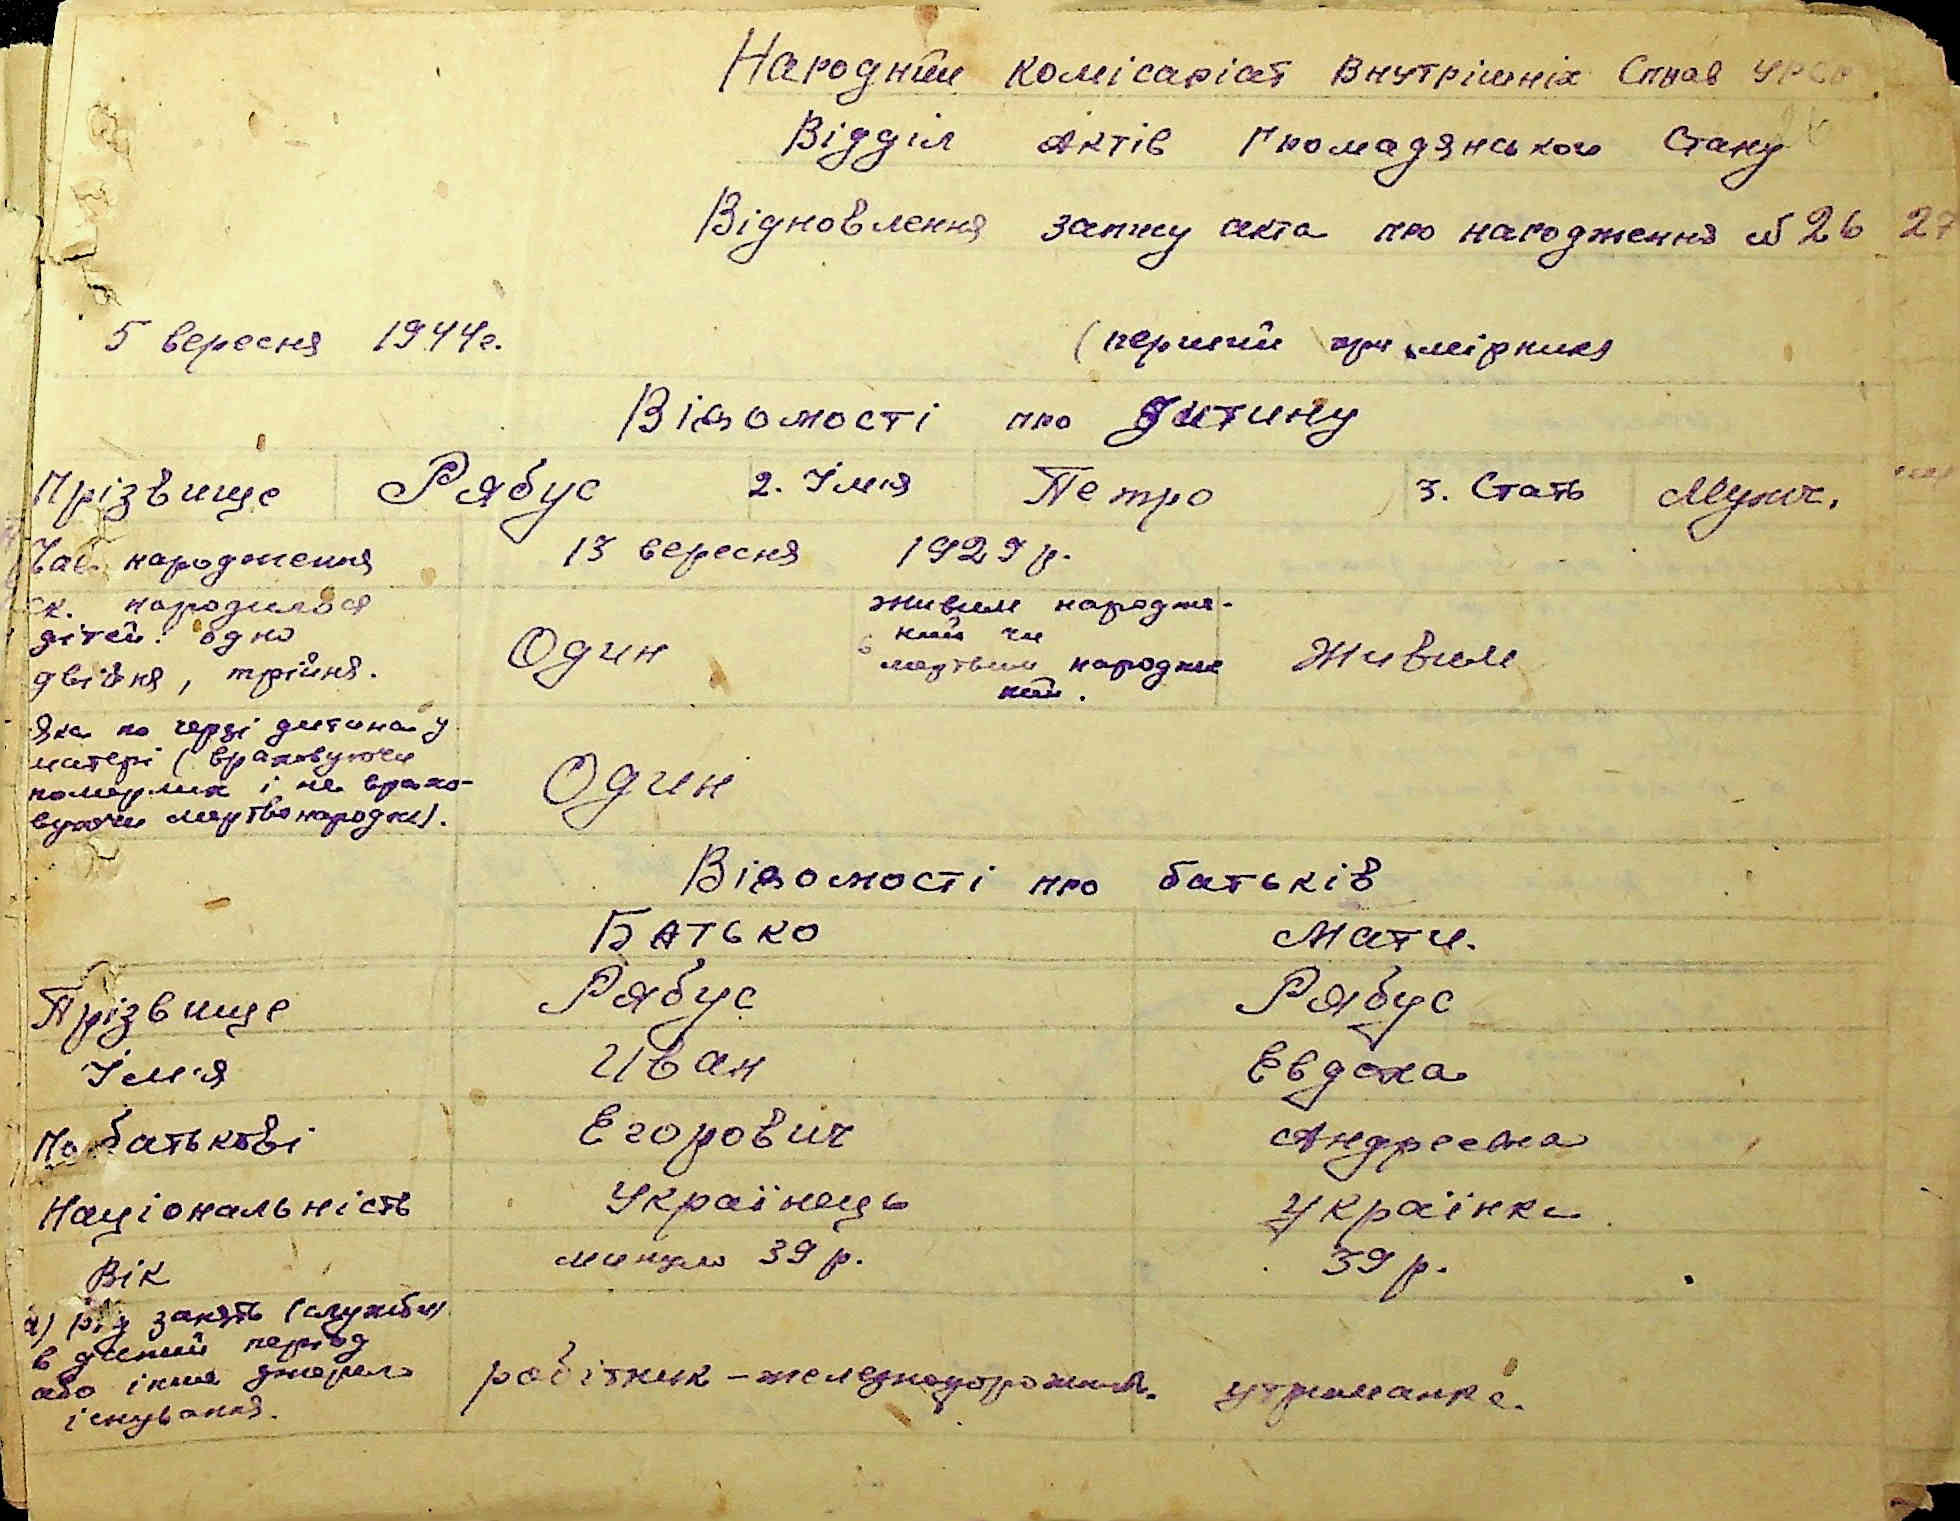 Народний комісаріат Внутрішніх Справ УРСР.
Відділ Актів Громадянського Стану
Відновлення запису акта про народження № 26 27
5 вересня 1944г.
(перший примірник)
Відомості про дитину
Прізвище Рябус 2. Ім'я Петро 3. Стать Мужч.
Час народження 13 вересня 1929 р.
ск. народилося
дітей: одно
двійня, трійня.
Один
живим народже-
ний чи
мертвим народже
ний.
Живим
Яка по черзі дитина у
матері (враховуючи
померлих і не врахо-
вуючи мертвонародж).
Один
Відомості про батьків
Батько Мати.
Прізвище Рябус Рябус
Ім'я Иван Евдоха
По батькові Егорович Андреевна
Національність Українець Українка
Вік минуло 39 р. 39 р.
а) рід занять (служби)
в даний період
або інше джерело
існування.
робітник - железнодорожник. утриманка.